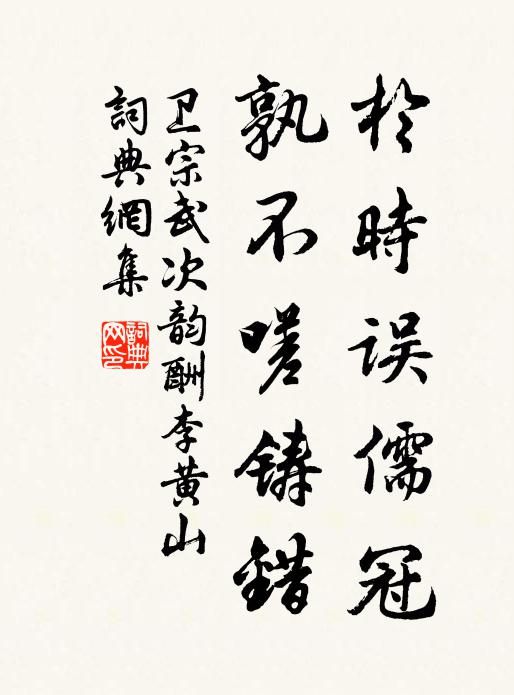 於時误儒冠
孰不嗟铸錯
卫宗武次韵酬李黄山
詞典網集
詞典网印